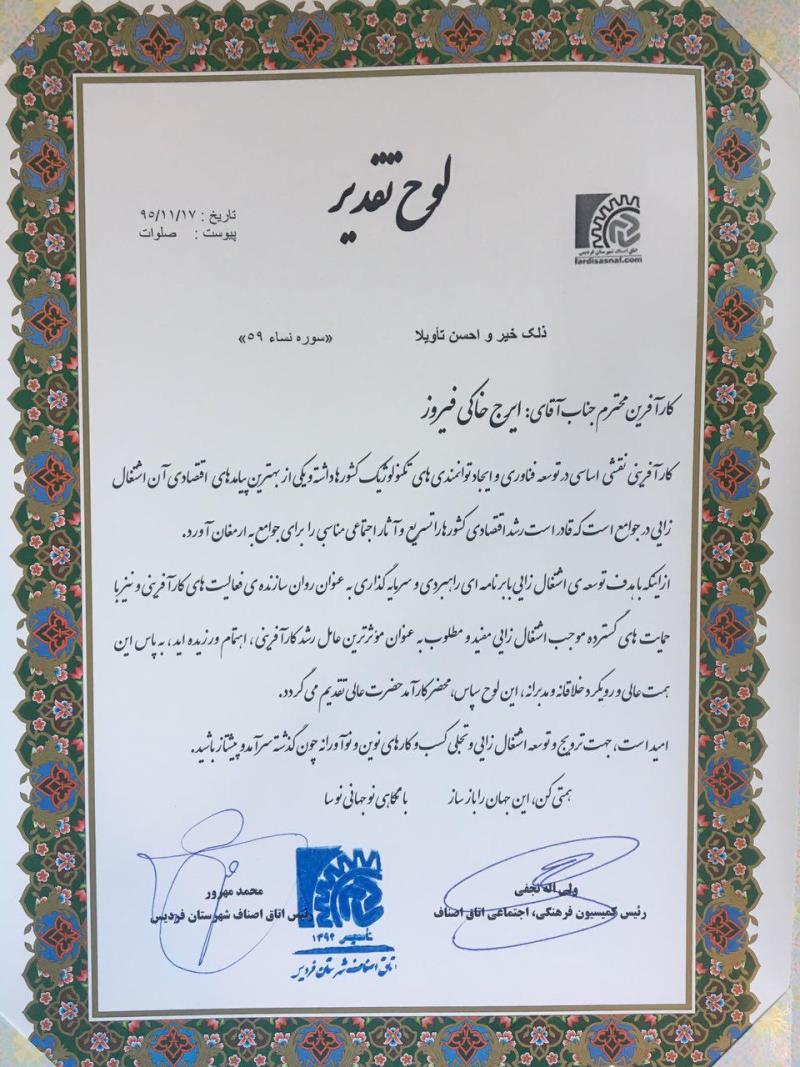 لوح تقدیر
تاریخ : ۹۵/۱۱/۱۷
پیوست : صلوات
اتاق اصناف شهرستان فردیس
fardisasnaf.com
ذلک خیر و احسن تأویلا «سوره نساء ۵۹»
کارآفرین محترم جناب آقای: ایرج خاکی فیروز
کارآفرینی نقشی اساسی در توسعه فناوری و ایجاد توانمندی های تکنولوژیک کشورها داشته و یکی از بهترین پیامدهای اقتصادی آن اشتغال
زایی در جوامع است که قادر است رشد اقتصادی کشورها را تسریع و آثار اجتماعی مناسبی را برای جوامع به ارمغان آورد.
از اینکه با هدف توسعه ی اشتغال زایی با برنامه ای راهبردی و سرمایه گذاری به عنوان روان سازنده ی فعالیت های کارآفرینی و نیز با
حمایت های گسترده موجب اشتغال زایی مفید و مطلوب به عنوان مؤثرترین عامل رشد کارآفرینی، اهتمام ورزیده اید، به پاس این
همت عالی و رویکرد خلاقانه و مدبرانه، این لوح سپاس، محضر کارآمد حضرت عالی تقدیم می گردد.
امید است، جهت ترویج و توسعه اشتغال زایی و تجلی کسب و کارهای نوین و نوآورانه چون گذشته سرآمد و پیشتاز باشید.
همتی کن، این جهان را باز ساز با نگاهی نو جهانی نو سا
ولی اله نجفی
رئیس کمیسیون فرهنگی، اجتماعی اتاق اصناف
محمد مهرور
رئیس اتاق اصناف شهرستان فردیس
تاسیس ۱۳۹۲
اتاق اصناف شهرستان فردیس